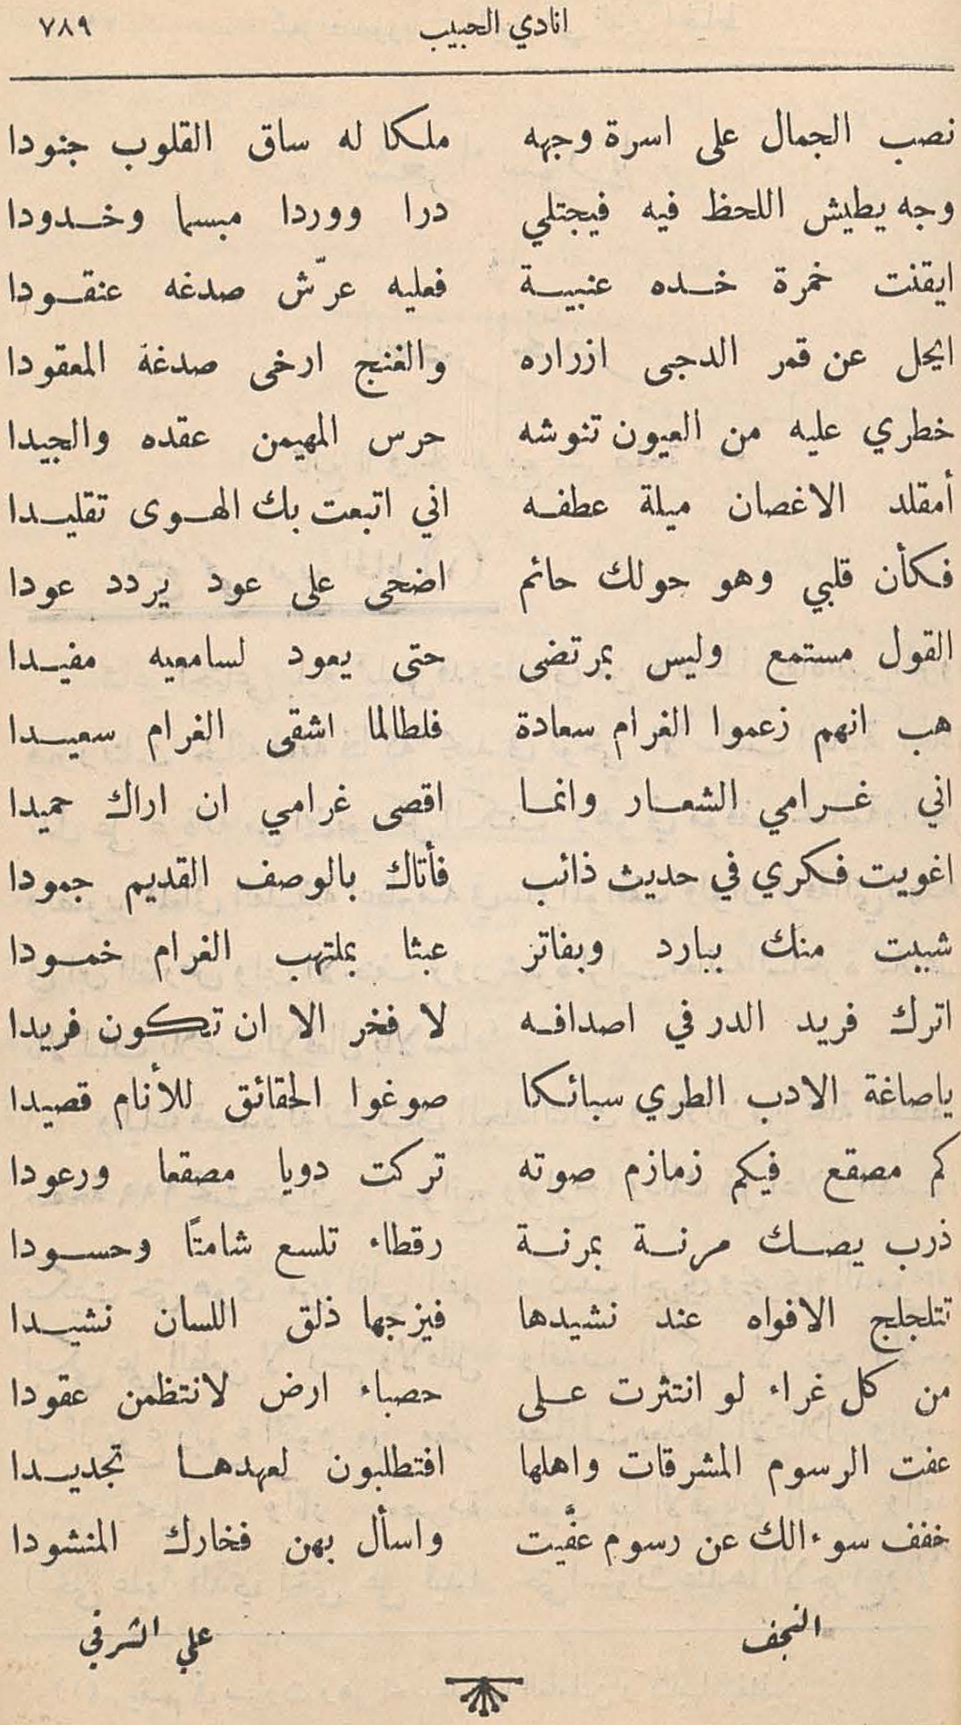 انادي الحبيب ٧٨٩
نصب الجمال على اسرة وجهه ملكا له ساق القلوب جنودا
وجه يطيش اللحظ فيه فيجتلي درا ووردا مبسما وخدودا
ايقنت خمرة خده عنبية فعليه عرّش صدغه عنقودا
ايحل عن قمر الدجى ازراره والغنج ارخى صدغة المعقودا
خطري عليه من العيون تنوشه حرس المهيمن عقده والجيدا
أمقلد الاغصان ميلة عطفه اني اتبعت بك الهوى تقليدا
فكأن قلبي وهو حولك حائم اضحى على عود يردد عودا
القول مستمع وليس بمرتضى حتى يعود لسامعيه مفيدا
هب انهم زعموا الغرام سعادة فلطالما اشقى الغرام سعيدا
اني غرامي الشعار وانما اقصى غرامي ان اراك حميدا
اغويت فكري في حديث ذائب فأتاك بالوصف القديم جمودا
شبيت منك ببارد وبفاتر عبثا بملتهب الغرام خمودا
اترك فريد الدر في اصدافه لا فخر الا ان تكون فريدا
ياصاغة الادب الطري سبائكا صوغوا الحقائق للأنام قصيدا
كم مصقع فيكم زمازم صوته تركت دويا مصقعا ورعودا
ذرب يصك مرنة بمرنة رقطاء تلسع شامتًا وحسودا
تتلجلج الافواه عند نشيدها فيزجها ذلق اللسان نشيدا
من كل غراء لو انتثرت على حصباء ارض لانتظمن عقودا
عفت الرسوم المشرقات واهلها افتطلبون لعهدها تجديدا
خفف سوءالك عن رسوم عفَّيت واسأل بهن فخارك المنشودا
النجف علي الشرقي